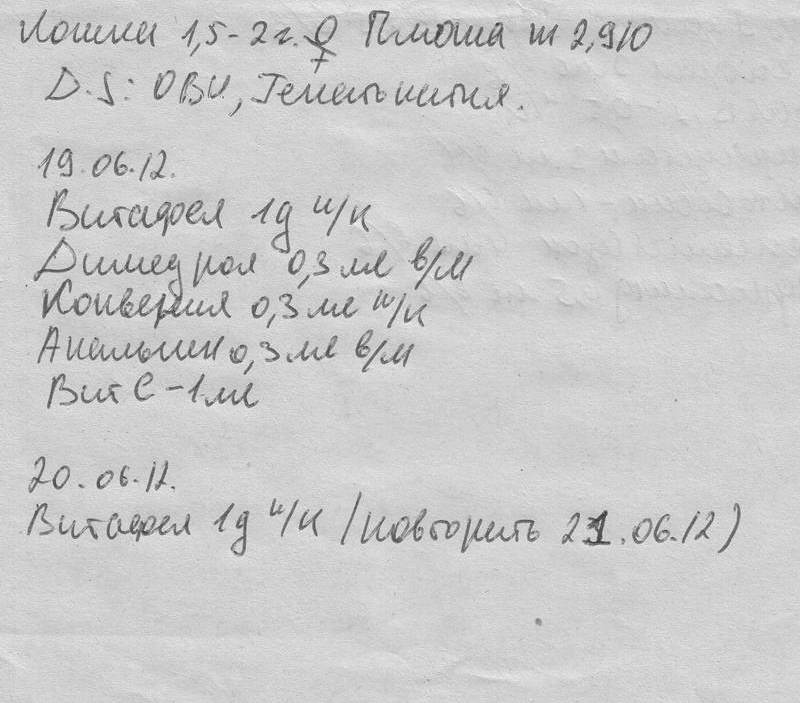 Кошка 1,5-2 г. ♀ Плюша m 2,910
D.S: ОВИ, Гепатопатия.
19.06.12.
Витафел 1д п/к
Димедрол 0,3 мл в/м
Конвения 0,3 мл п/к
Анальгин 0,3 мл в/м
Вит С - 1 мл
20.06.12.
Витафел 1д п/к (повторить 21.06.12)